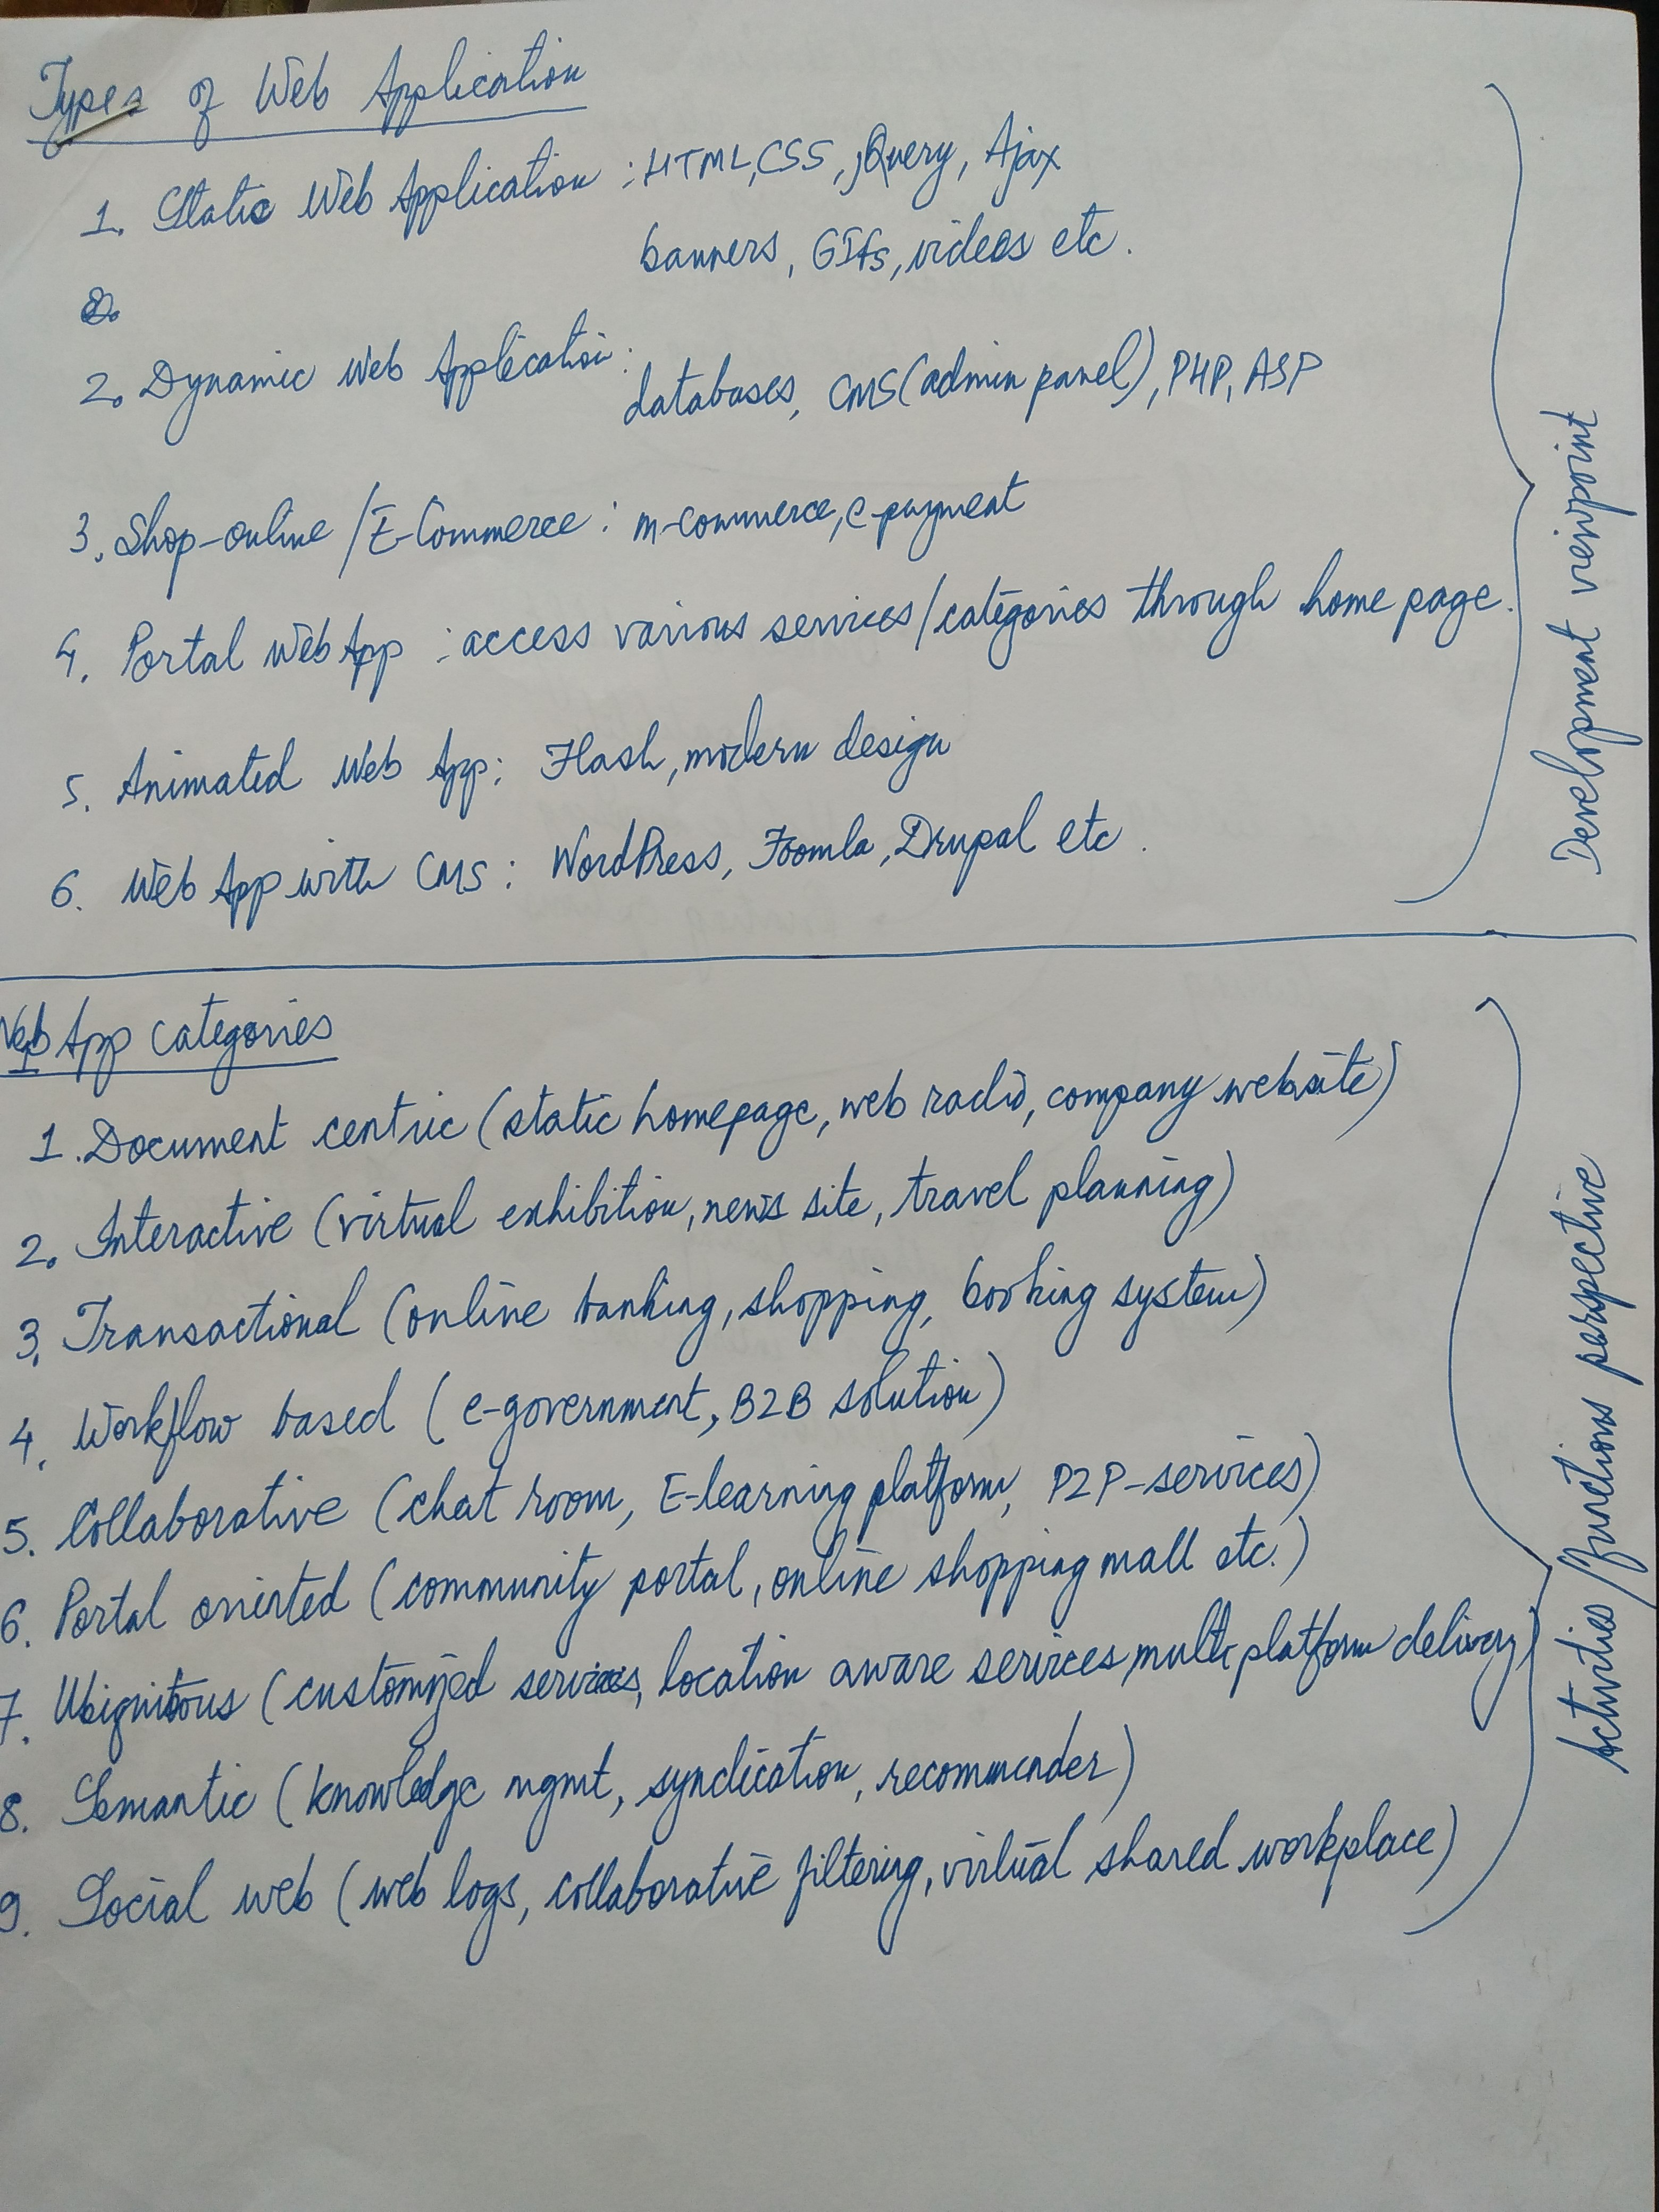 Types of Web Application
1. Static Web Application : HTML, CSS, jQuery, Ajax
banners, GIFs, videos etc.
2.
2. Dynamic Web Application :
databases, CMS (admin panel), PHP, ASP
3. Shop-online / E-Commerce : m-commerce, e-payment
4. Portal Web App : access various services/categories through home page.
5. Animated Web App : Flash, modern design
6. Web App with CMS : WordPress, Joomla, Drupal etc.
Development viewpoint
Web App Categories
1. Document centric (static homepage, web radio, company website)
2. Interactive (virtual exhibition, news site, travel planning)
3. Transactional (online banking, shopping, booking system)
4. Workflow based (e-government, B2B solution)
5. Collaborative (chat room, E-learning platform, P2P-services)
6. Portal oriented (community portal, online shopping mall etc.)
7. Ubiquitous (customized services, location aware services, multi platform delivery)
8. Semantic (knowledge mgmt, syndication, recommender)
9. Social web (web logs, collaborative filtering, virtual shared workplace)
Activities / functions perspective